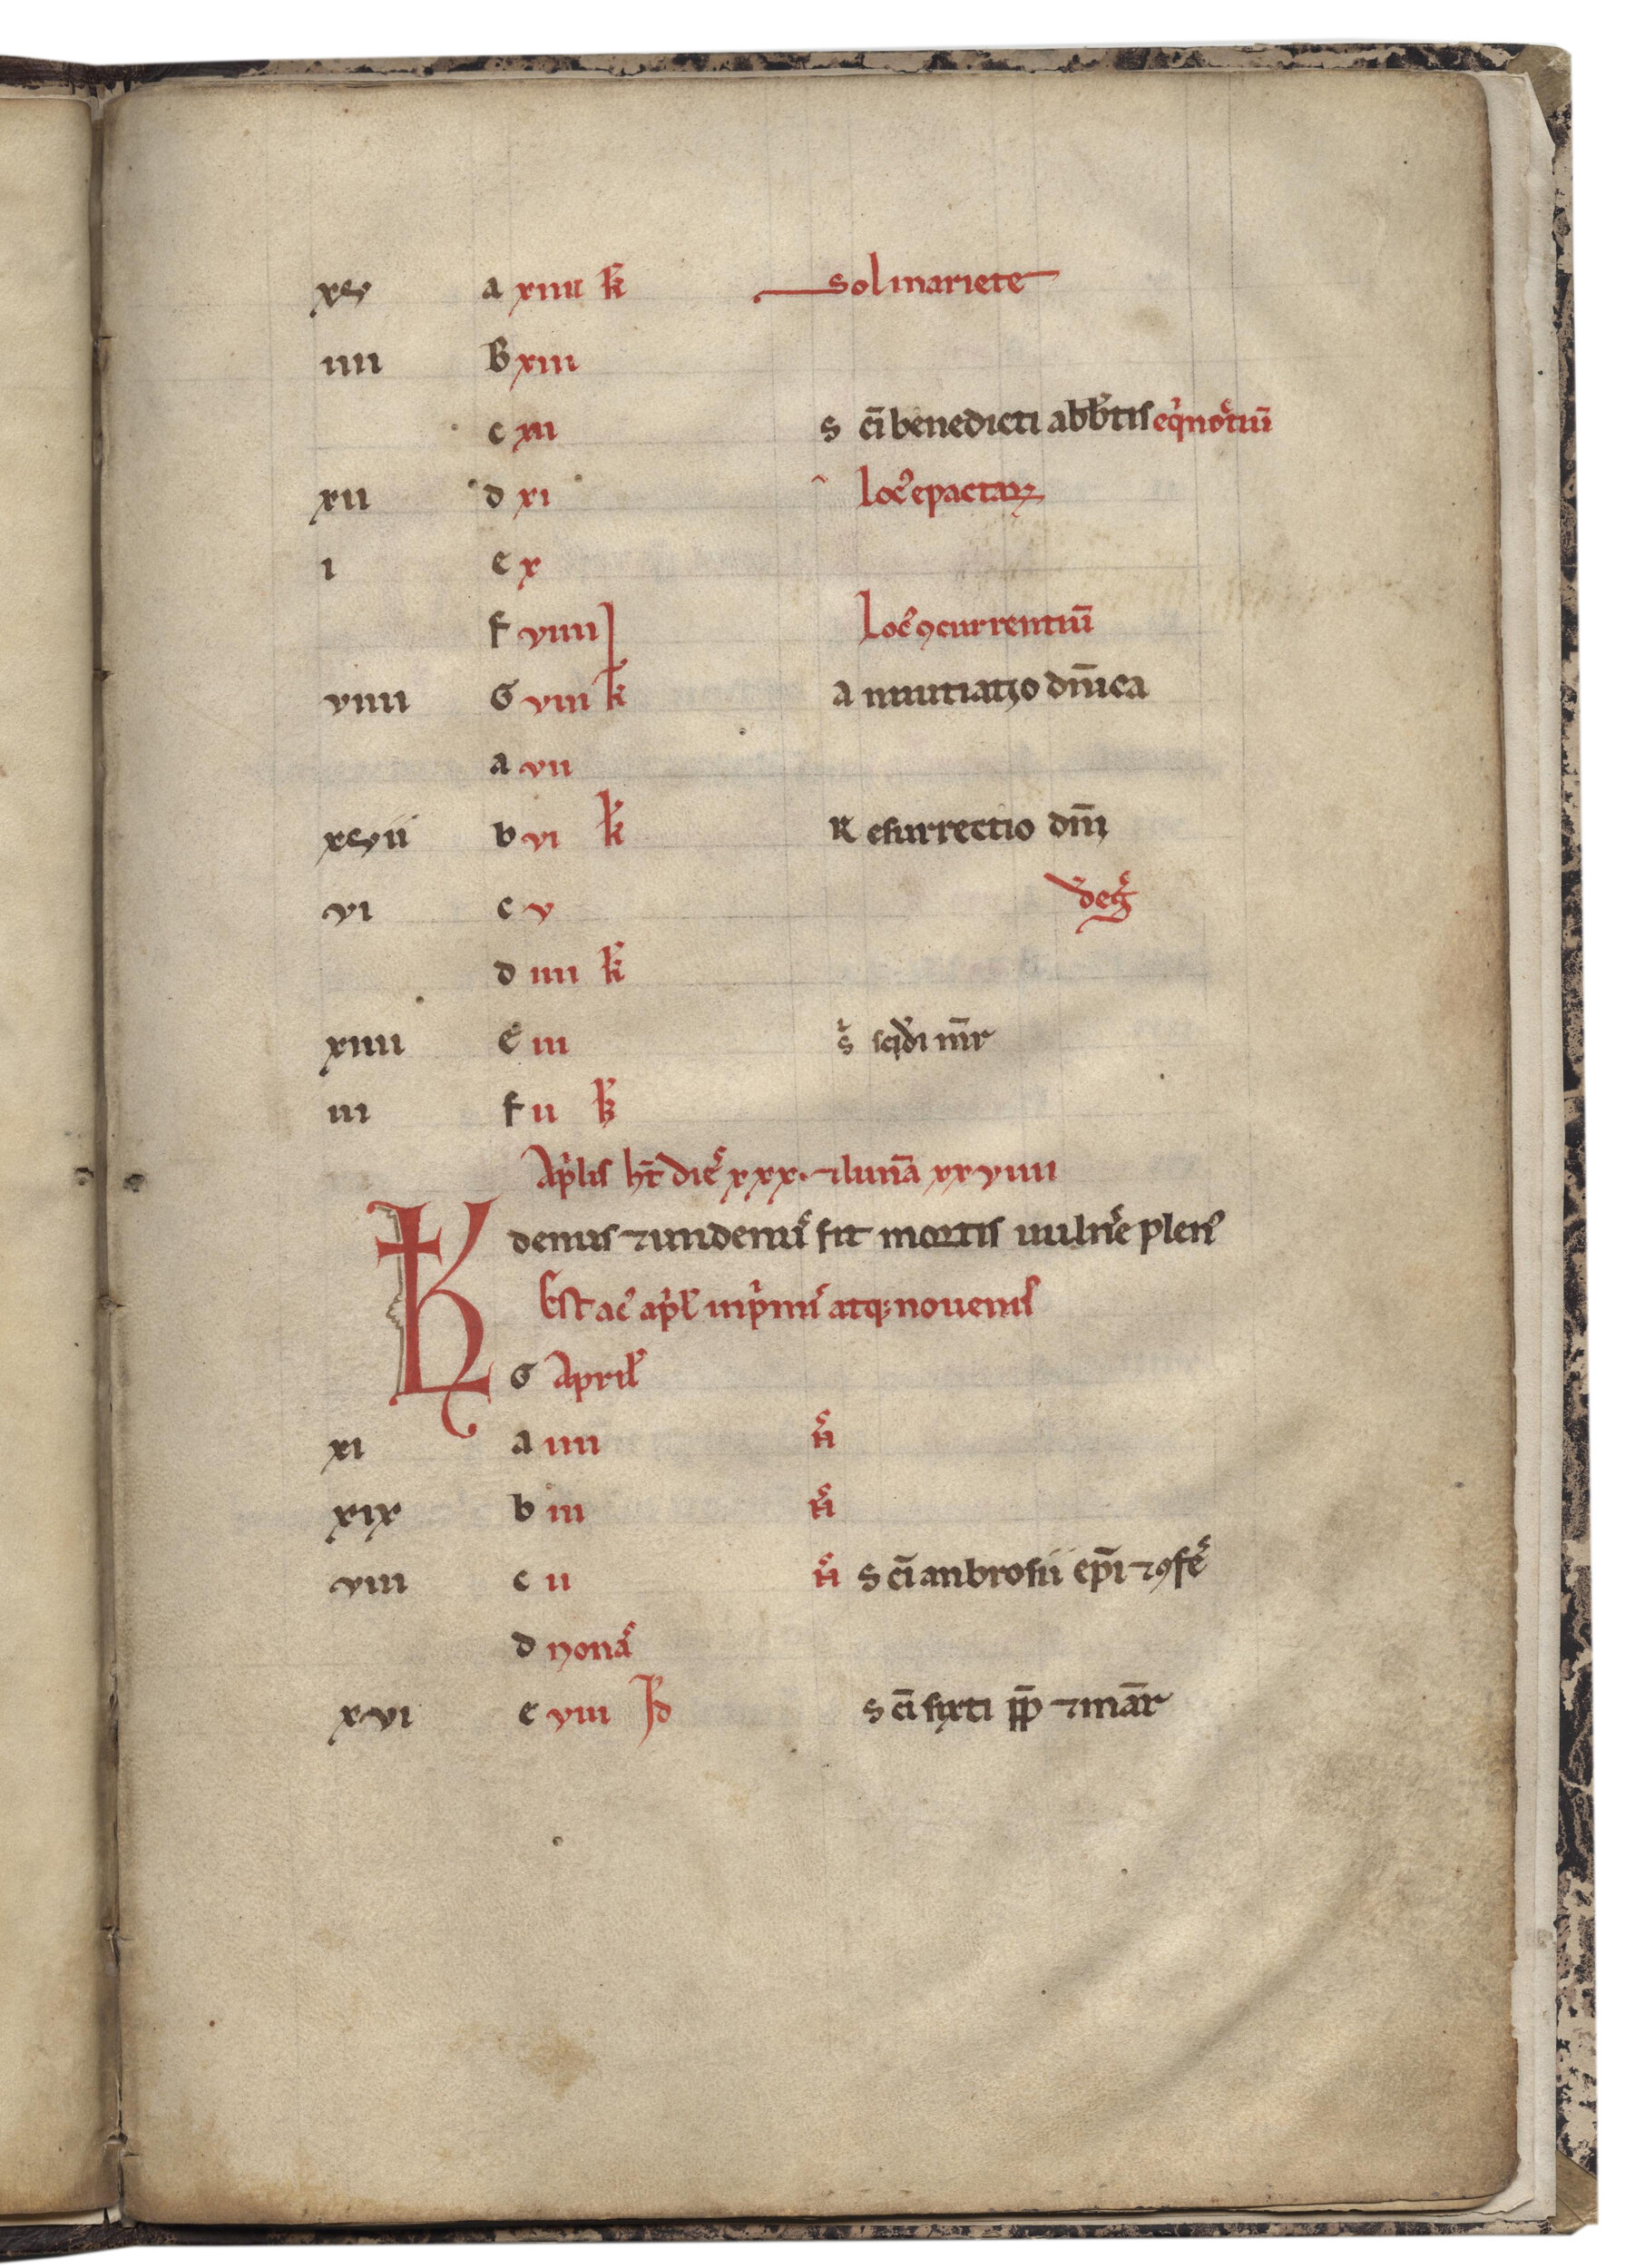 xv a xiiii k̄ sol in ariete
iiii B xiii
c xii s c̄i benedicti abb̄tis eq̍noc̄tiū
xii d xi loc᷒ epactaꝝ
i e x
f viiii loc᷒ ꝯcurrentiū
viiii G viii k̄ A nnuntiatio dn̄ica
a vii
xvii b vi k̄ R esurrectio dn̄i
vi c v
d iiii k̄
xiiii e iii
iii f ii k̄
Ap̍lis ht̄ die᷒ xxx. ⁊ lunā xxviiii
K denus ⁊ undenu᷒ fit mortis uulne᷒ plen᷒
Est ac᷒ ap̍l᷒ in p̍mi᷒ atqꝫ nouenis
G April᷒
xi a iiii n̄
xix b iii n̄
viii c ii n̄ S c̄i anbrosii ep̄i ⁊ ꝯfe᷒
d nona᷒
xvi e viii Id S c̄i sixti pp̄ ⁊ mār